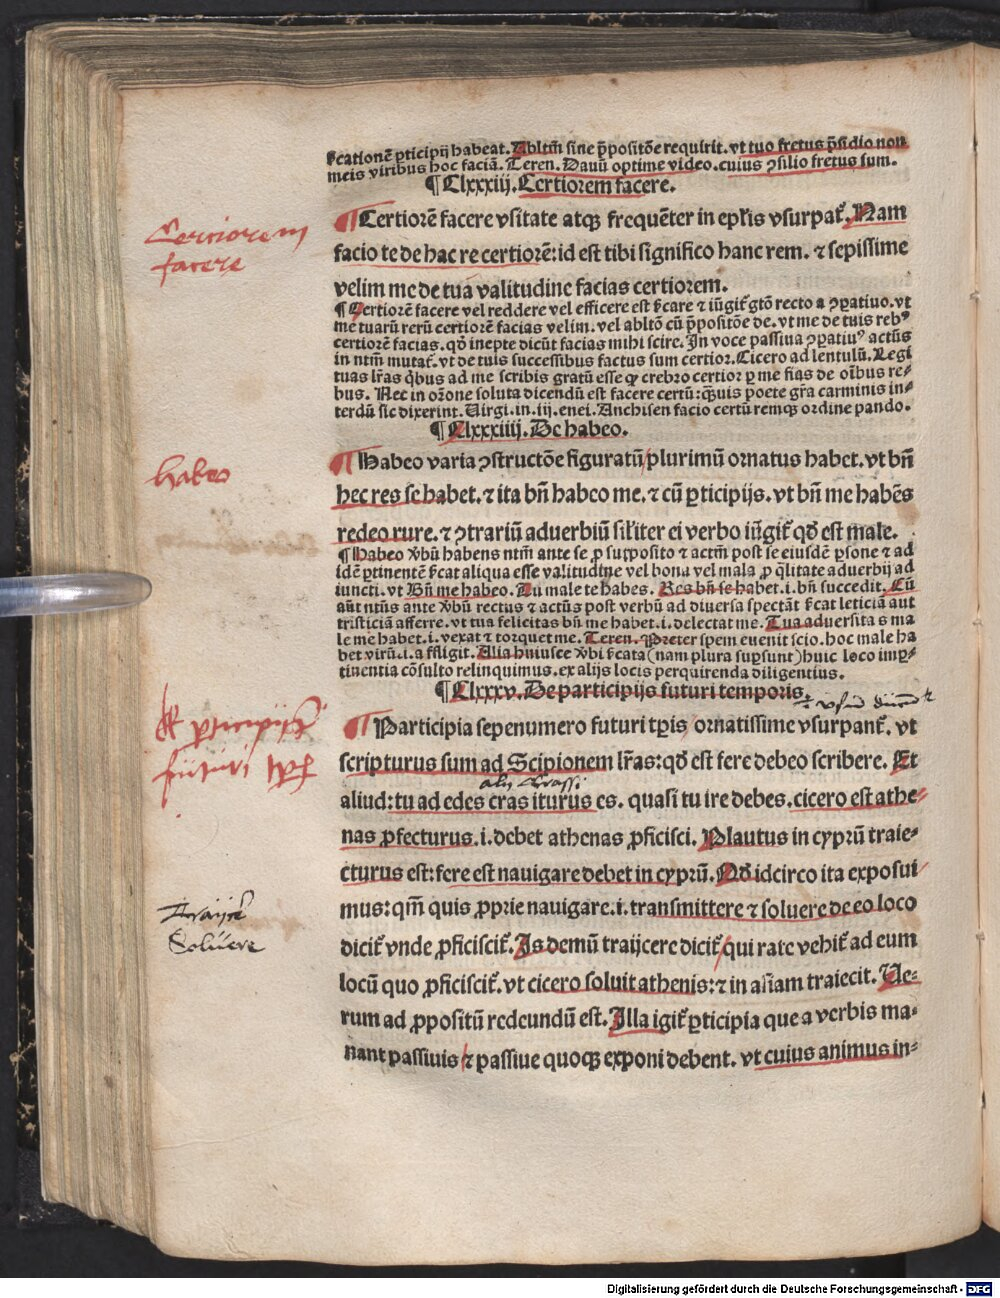 ficationē ꝑticipij habeat. Abltm̄ sine p̄positōe requirit. vt tuo fretus p̄sidio non
meis viribus hoc faciā. Teren. Dauū optime video. cuius ꝯsilio fretus sum.
¶ Clxxxiij. Certiorem facere.
¶ Certiorē facere vsitate atqꝫ frequēter in epl̄is vsurpat᷑. Nam
facio te de hac re certiorē: id est tibi significo hanc rem. ⁊ sepissime
velim me de tua valitudine facias certiorem.
¶ Certiorē facere vel reddere vel efficere est
me tuarū rerū certiorē facias velim. vel abltō cū p̄positōe de. vt me de tuis rebꝰ
certiorē facias. qd̄ inepte dicūt facias mihi scire. In voce passiua ꝯꝑatiuꝰ actūs
in ntm̄ mutat᷑. vt de tuis successibus factus sum certior. Cicero ad lentulū. Legi
tuas lr̄as qͥbus ad me scribis gratū esse ꝙ crebro certior ꝑ me fias de oībus re⸗
bus. Nec in oꝛōne soluta dicendū est facere certū: qͣuis poete gr̄a carminis in⸗
terdū sic dixerint. Uirgi. in. iij. enei. Anchisen facio certū remqꝫ ordine pando.
¶ Clxxxiiij. De habeo.
¶ Habeo varia ꝯstructōe figuratū plurimū ornatus habet. vt bn̄
hec res se habet. ⁊ ita bn̄ habeo me. ⁊ cū ꝑticipijs. vt bn̄ me habēs
redeo rure. ⁊ ꝯtrariū aduerbiū sil̄iter ei verbo iūgit᷑ qd̄ est male.
¶ Habeo v̄bū habens ntm̄ ante se ꝓ supposito ⁊ actm̄ post se eiusdē ꝑsone ⁊ ad
idē ꝑtinentē aliqua esse valitudine vel bona vel mala ꝓ qͣlitate aduerbij ad
iuncti. vt Bn̄ me habeo. Tu male te habes. Res bn̄ se habet. i. bn̄ succedit. Cū
aūt ntūs ante v̄bū rectus ⁊ actūs post verbū ad diuersa spectāt leticiā aut
tristiciā afferre. vt tua felicitas bn̄ me habet. i. delectat me. Tua aduersitas ma
le me habet. i. vexat ⁊ torquet me. Teren. Preter spem euenit scio. hoc male ha
bet virū. i. affligit. Alia huiusce v̄bi (nam plura suꝑsunt) huic loco imꝑ⸗
tinentia cōsulto relinquimus. ex alijs locis perquirenda diligentius.
¶ Clxxxv. De participijs futuri temporis.
¶ Participia sepenumero futuri tꝑis ornatissime vsurpant᷑. vt
scripturus sum ad Scipionem lr̄as: qd̄ est fere debeo scribere. Et
aliud: tu ad edes cras iturus es. quasi tu ire debes. cicero est athe⸗
nas ꝓfecturus. i. debet athenas ꝓficisci. Plautus in cyprū traie⸗
cturus est: fere est nauigare debet in cyprū. Qd̄ idcirco ita exposui
mus: qm̄ quis ꝓprie nauigare. i. transmittere ⁊ soluere de eo loco
dicit᷑ vnde ꝓficiscit᷑. Is demū traijcere dicit᷑ qui rate vehit᷑ ad eum
locū quo ꝓficiscit᷑. vt cicero soluit athenis: ⁊ in asiam traiecit. Ue⸗
rum ad ꝓpositū redeundū est. Illa igit᷑ ꝑticipia que a verbis ma⸗
nant passiuis ⁊ passiue quoqꝫ exponi debent. vt cuius animus in⸗
Cerciorem
facere
habeo
ꝑticipijs
futuri
Traijcere
Soluere
Digitalisierung gefördert durch die Deutsche Forschungsgemeinschaft - DFG